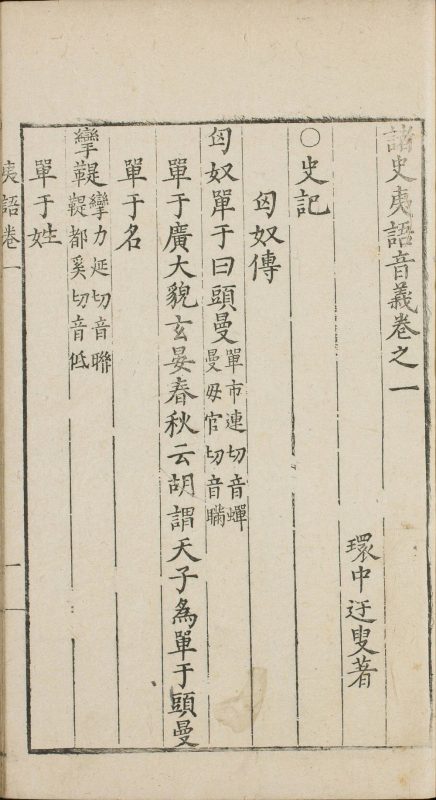 諸史夷語音義卷之一
環中迂叟著
○史記
匈奴傳
匈奴單于曰頭曼單市連切音蟬
曼毋官切音瞞
單于廣大貌玄晏春秋云胡謂天子為單于頭曼
單于名
攣鞮攣力延切音聯
鞮都奚切音低
單于姓
夷語卷一
一